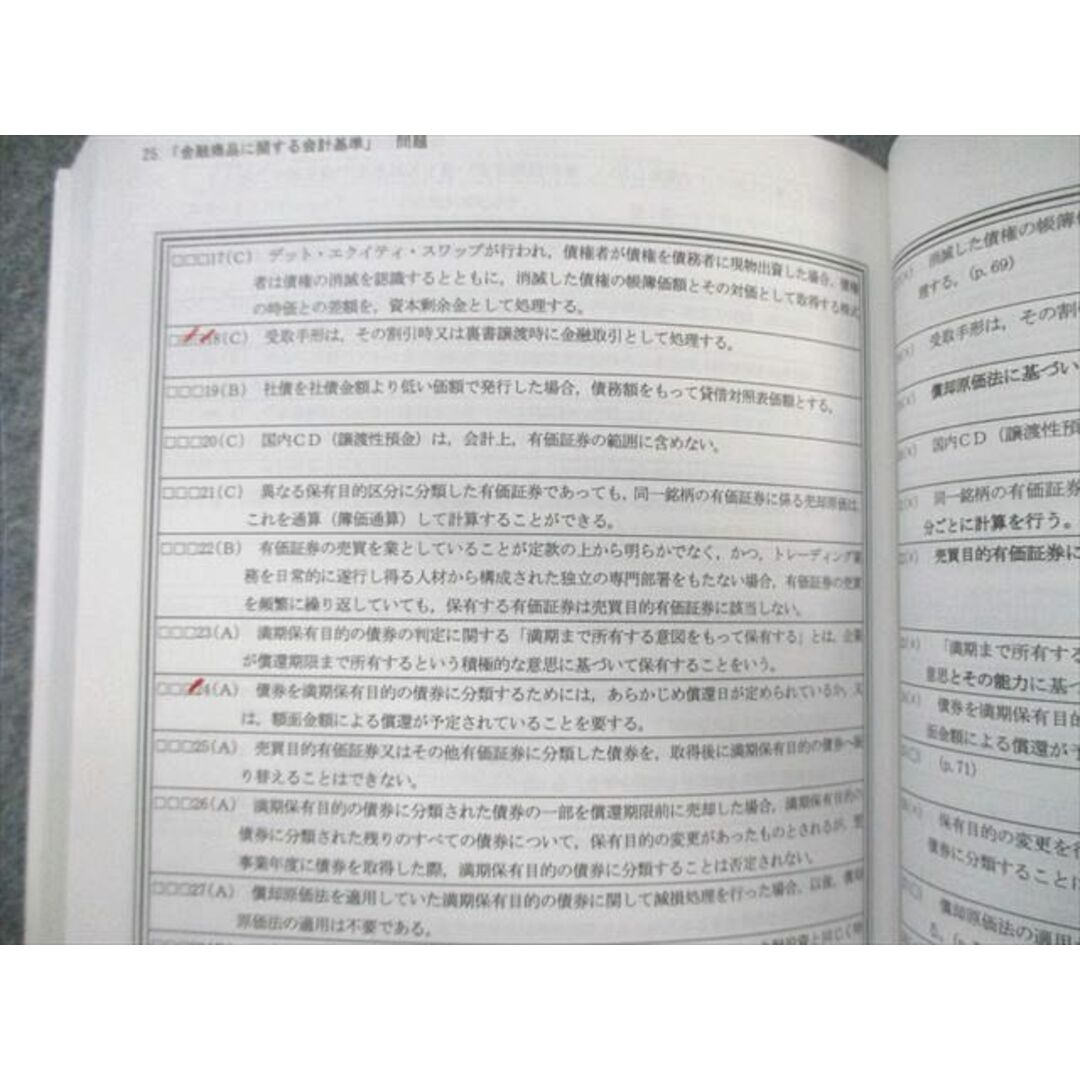 25 「金融商品に関する会計基準」 問題
□□□17(C) デット・エクイティ・スワップが行われ，債権者が債権を債務者に現物出資した場合，債権
者は債権の消滅を認識するとともに，消滅した債権の帳簿価額とその対価として取得する株式
の時価との差額を，資本剰余金として処理する。
□□□18(C) 受取手形は，その割引時又は裏書譲渡時に金融取引として処理する。
□□□19(B) 社債を社債金額より低い価額で発行した場合，債務額をもって貸借対照表価額とする。
□□□20(C) 国内CD（譲渡性預金）は，会計上，有価証券の範囲に含めない。
□□□21(C) 異なる保有目的区分に分類した有価証券であっても，同一銘柄の有価証券に係る売却原価は
これを通算（簿価通算）して計算することができる。
□□□22(B) 有価証券の売買を業としていることが定款の上から明らかでなく，かつ，トレーディング業
務を日常的に遂行し得る人材から構成された独立の専門部署をもたない場合，有価証券の売買
を頻繁に繰り返していても，保有する有価証券は売買目的有価証券に該当しない。
□□□23(A) 満期保有目的の債券の判定に関する「満期まで所有する意図をもって保有する」とは，企業
が償還期限まで所有するという積極的な意思に基づいて保有することをいう。
□□□24(A) 債券を満期保有目的の債券に分類するためには，あらかじめ償還日が定められているか，又
は，額面金額による償還が予定されていることを要する。
□□□25(A) 売買目的有価証券又はその他有価証券に分類した債券を，取得後に満期保有目的の債券へ振
り替えることはできない。
□□□26(A) 満期保有目的の債券に分類された債券の一部を償還期限前に売却した場合，満期保有目的の
債券に分類された残りのすべての債券について，保有目的の変更があったものとされるが，翌
事業年度に債券を取得した際，満期保有目的の債券に分類することは否定されない。
□□□27(A) 償却原価法を適用していた満期保有目的の債券に関して減損処理を行った場合，以後，償却
原価法の適用は不要である。
消滅した債権の帳簿
理する。(p.69)
受取手形は，その割
償却原価法に基づい
国内CD（譲渡性預
同一銘柄の有価証券
分ごとに計算を行う。
売買目的有価証券に
「満期まで所有する
意思とその能力に基づ
債券を満期保有目的
面金額による償還が予
(p.71)
保有目的の変更を行
債券に分類することに
償却原価法の適用